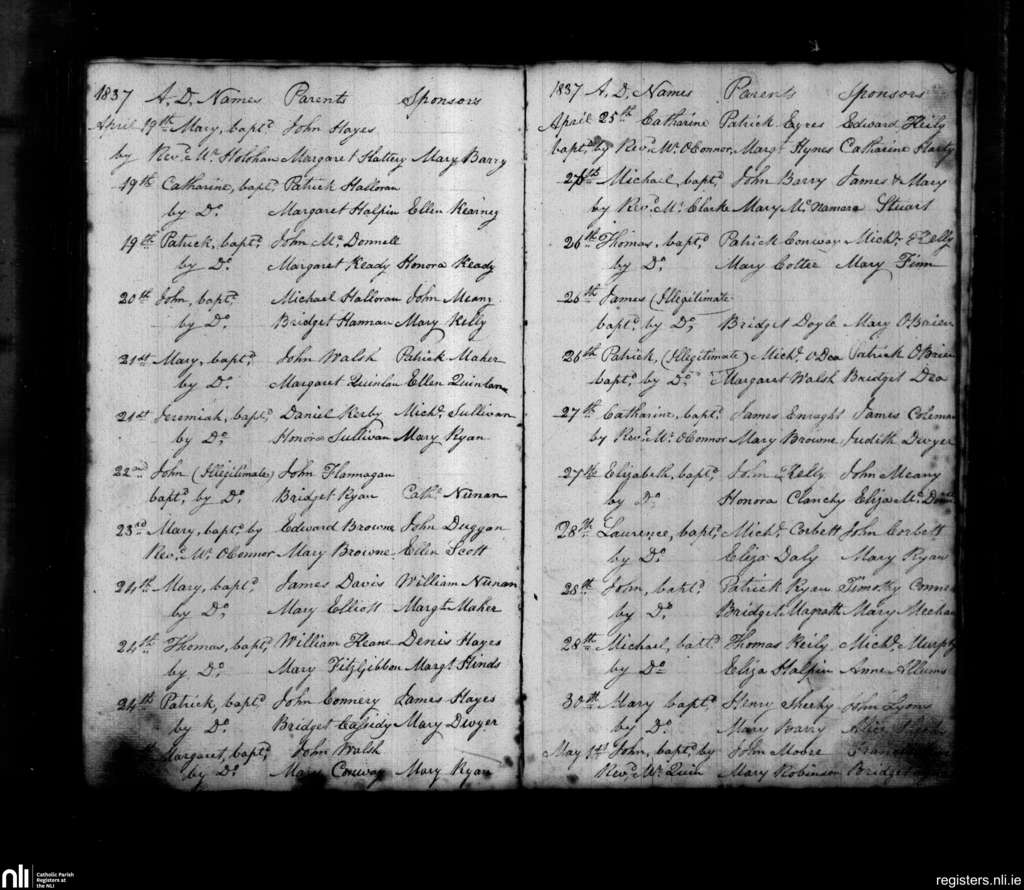 1837 A.D. Names Parents Sponsors
April 19th Mary, bapt.d John Hayes
by Rev.d Mr. Holohan Margaret Hattery Mary Barry
19th Catharine, bapt.d Patrick Halloran
by Do. Margaret Halpin Ellen Kearney
19th Patrick, bapt.d John Mc. Donnell
by Do. Margaret Keady Honora Keady
20th John, bapt.d Michael Halloran John Meany
by Do. Bridget Hannan Mary Kelly
21st Mary, bapt.d John Walsh Patrick Maher
by Do. Margaret Quinlan Ellen Quinlan
21st Jeremiah, bapt.d Daniel Kerby Mich.l Sullivan
by Do. Honora Sullivan Mary Ryan
22nd John (Illegitimate) John Flannagan
bapt.d by Do. Bridget Ryan Cath.e Neenan
23rd Mary, bapt.d by Edward Browne John Duggan
Rev.d Mr. OConnor Mary Browne Ellen Scott
24th Mary, bapt.d James Davis William Neenan
by Do. Mary Elliott Marg.t Maher
24th Thomas, bapt.d William Heane Denis Hayes
by Do. Mary Fitzgibbon Marg.t Hinds
24th Patrick, bapt.d John Connery James Hayes
by Do. Bridget Cassidy Mary Dwyer
Margaret, bapt.d John Walsh
by Do. Mary Conway Mary Ryan
1837 A.D. Names Parents Sponsors
April 25th Catharine Patrick Eyres Edward Hiely
bapt.d by Rev.d Mr. OConnor Marg.t Hynes Catharine Harty
26th Michael, bapt.d John Barry James & Mary
by Rev.d Mr. Clarke Mary Mc. Namara Stuart
26th Thomas, bapt.d Patrick Conway Mich.l Kelly
by Do. Mary Cotter Mary Finn
26th James (Illegitimate
bapt.d by Do. Bridget Doyle Mary OBrien
26th Patrick, (Illegitimate) Mich.l O'Dea Patrick OBrien
bapt.d by Do. Margaret Walsh Bridget Dea
27th Catharine, bapt.d James Enraght James Coleman
by Rev.d Mr. OConnor Mary Browne Judith Dwyer
27th Elizabeth, bapt.d John Kelly John Meany
by Do. Honora Clanchy Eliza Mc.
28th Laurence, bapt.d Mich.l Corbett John Corbett
by Do. Eliza Daly Mary Ryan
28th John, bapt.d Patrick Ryan Timothy
by Do. Bridget Magrath Mary Meehan
28th Michael, bapt.d Thomas Keily Mich.l Murphy
by Do. Eliza Halpin Anne Allums
30th Mary bapt.d Henry Sheehy John Lyons
by Do. Mary Barry Alice
May 1st John, bapt.d by John Moore
Rev.d Mr. Quin Mary Robinson Bridget
nli Catholic Parish
Registers at
the NLI
registers.nli.ie